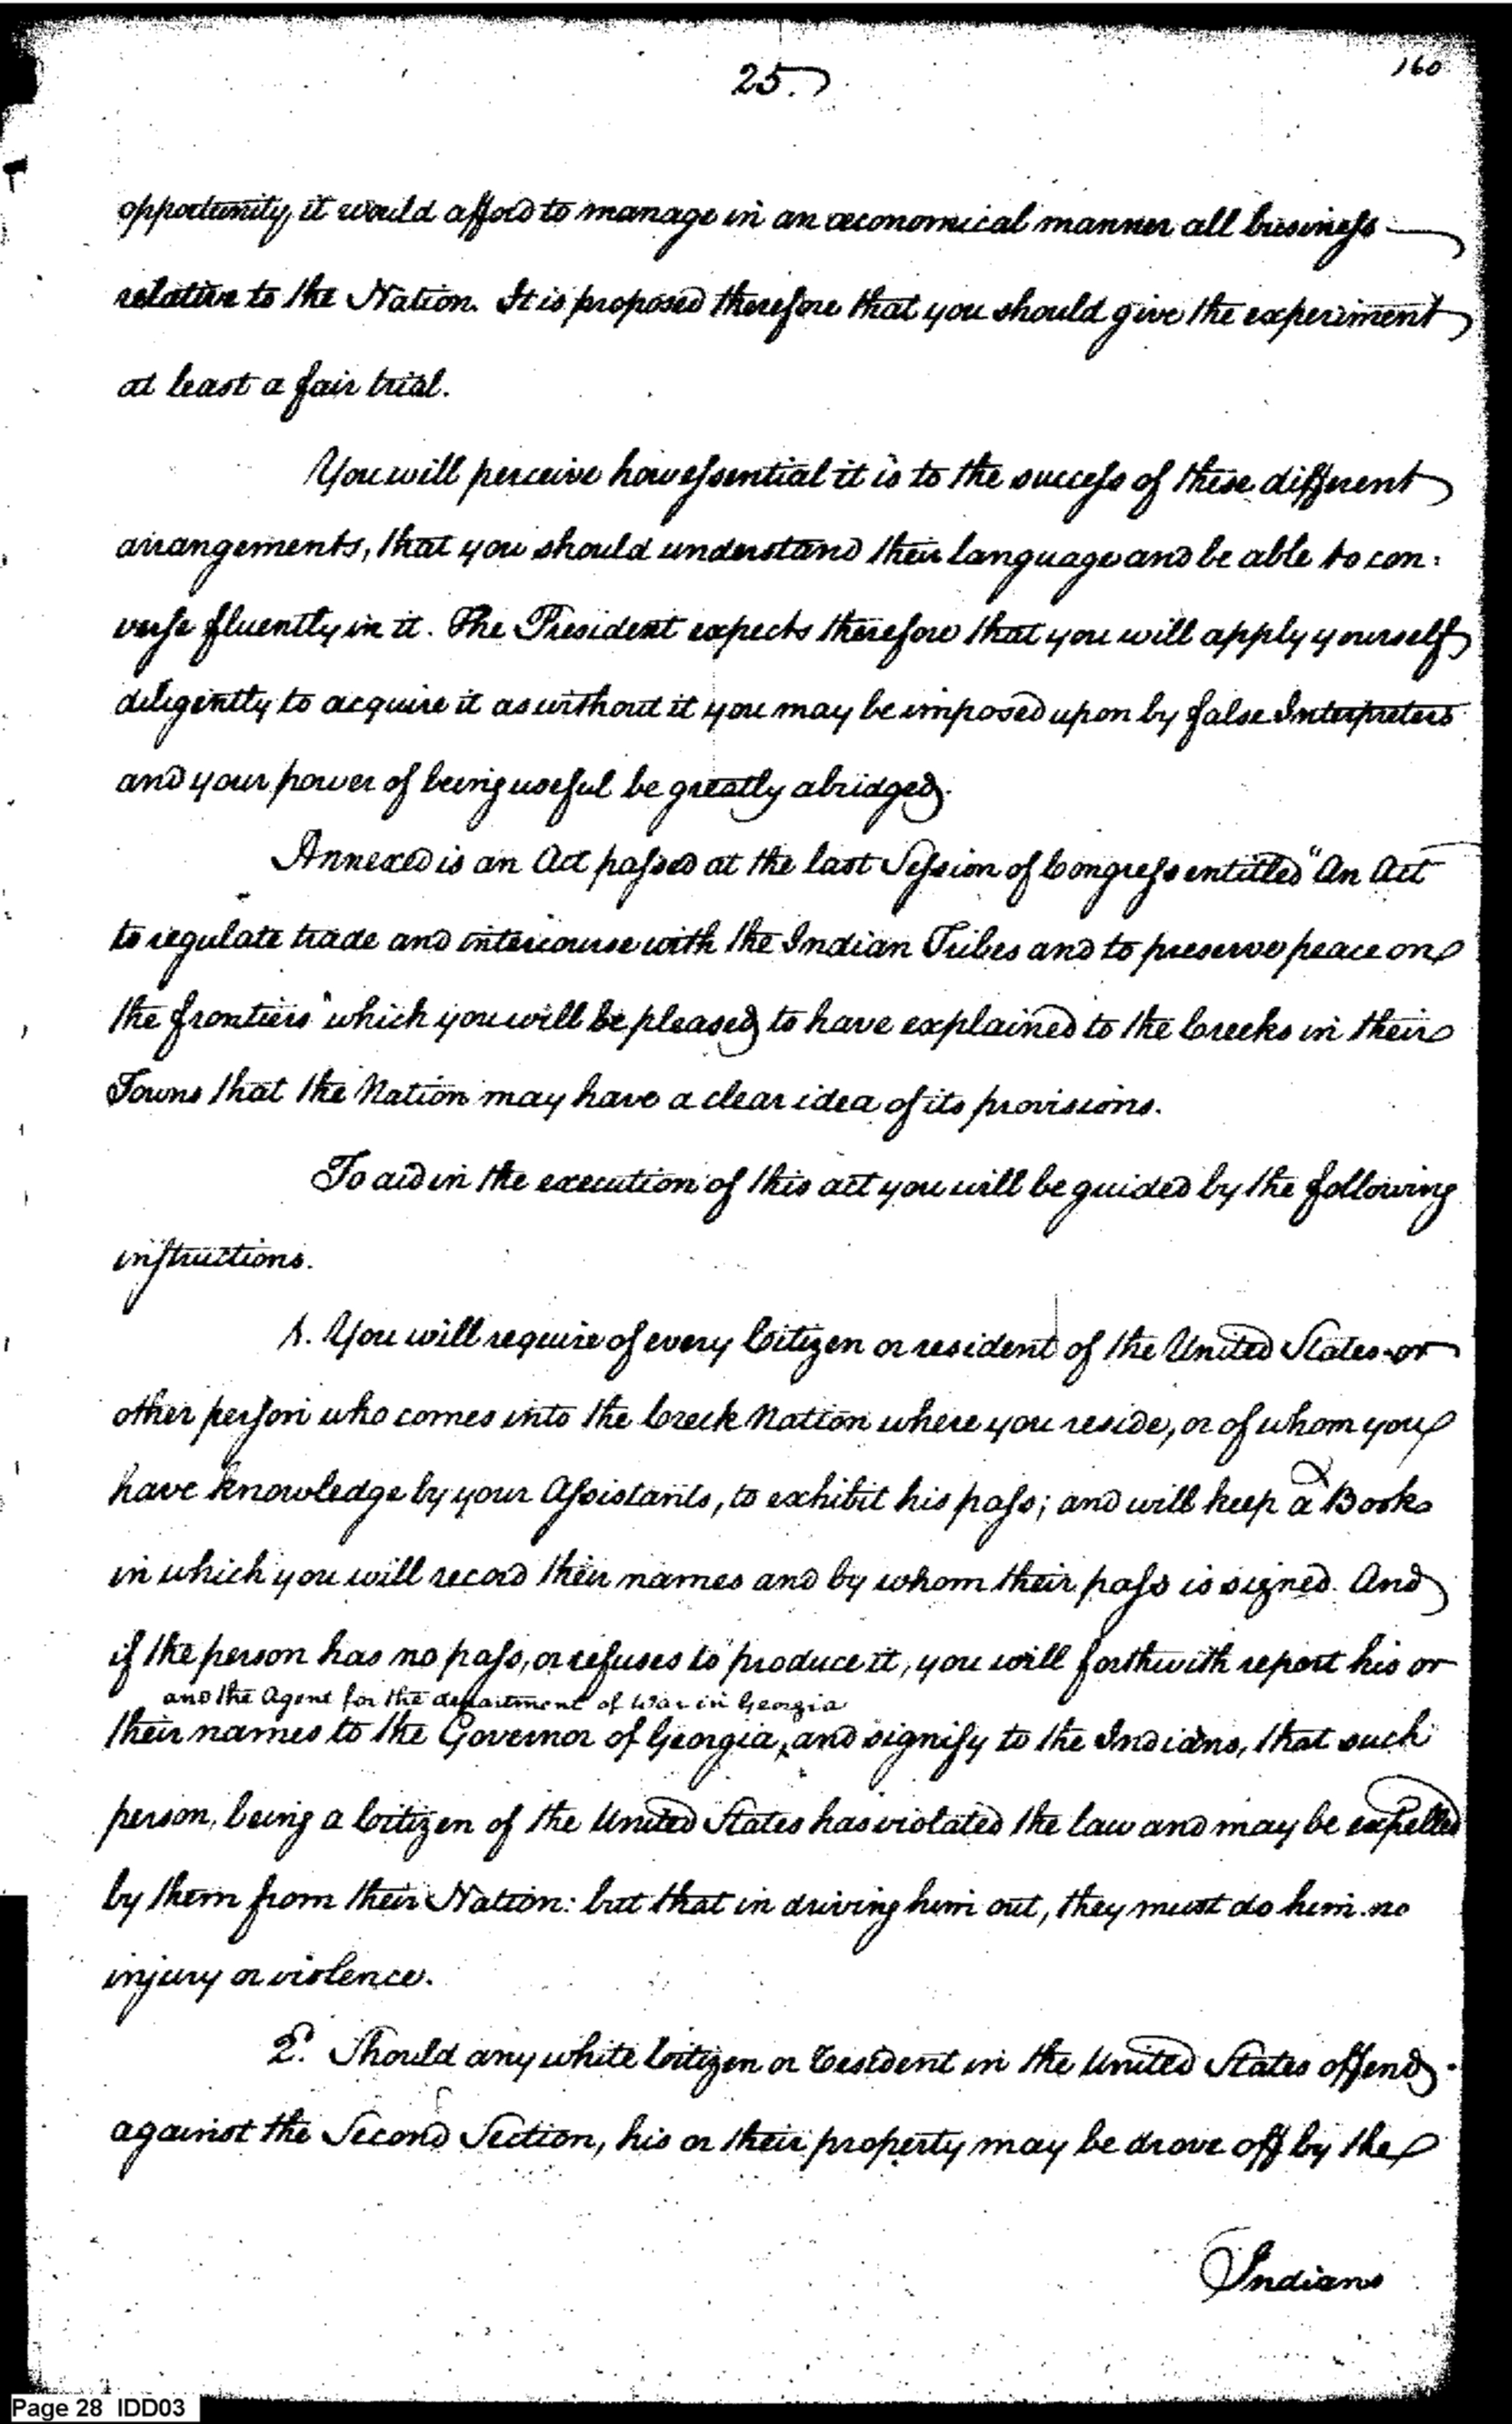 25.
160
opportunity it would afford to manage in an œconomical manner all business
relative to the Nation. It is proposed therefore that you should give the experiment
at least a fair trial.
You will perceive how essential it is to the success of these different
arrangements, that you should understand their language and be able to con:
verse fluently in it. The President expects therefore that you will apply yourself
diligently to acquire it as without it you may be imposed upon by false Interpreters
and your power of being useful be greatly abridged.
Annexed is an Act passed at the last Session of Congress entitled "An Act
to regulate trade and intercourse with the Indian Tribes and to preserve peace on
the frontiers" which you will be pleased to have explained to the Creeks in their
Towns that the Nation may have a clear idea of its provisions.
To aid in the execution of this act you will be guided by the following
instructions.
1. You will require of every Citizen or resident of the United States or
other person who comes into the Creek Nation where you reside, or of whom you
have knowledge by your Assistants, to exhibit his pass; and will keep a Book
in which you will record their names and by whom their pass is signed. And
if the person has no pass, or refuses to produce it, you will forthwith report his or
and the Agent for the department of War in Georgia
their names to the Governor of Georgia, and signify to the Indians, that such
person, being a Citizen of the United States has violated the law and may be expelled
by them from their Nation: but that in driving him out, they must do him no
injury or violence.
2d. Should any white Citizen or Resident in the United States offend
against the Second Section, his or their property may be drove off by the
Indians
Page 28 IDD03